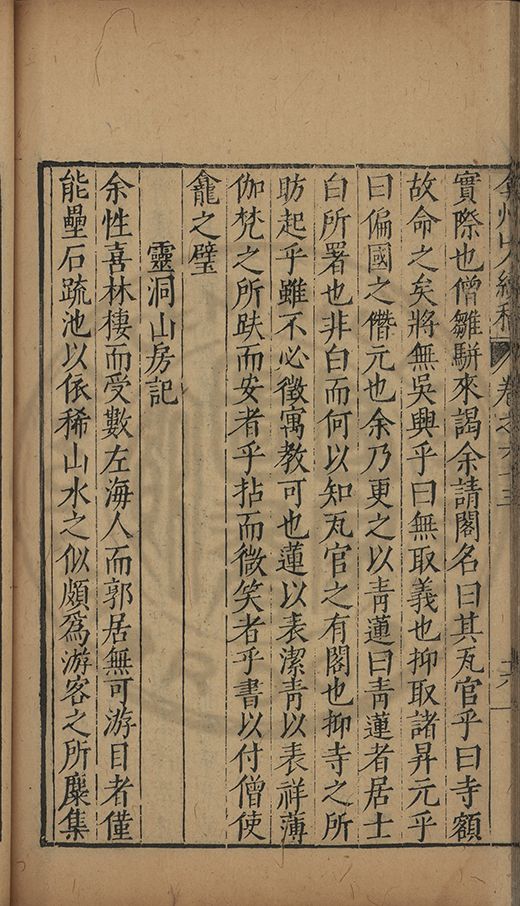 實際也僧雛駢來謁余請閣名曰其瓦官乎曰寺額
故命之矣將無吳興乎曰無取義也抑取諸昇元乎
曰偏國之僭元也余乃更之以青蓮曰青蓮者居士
白所署也非白而何以知瓦官之有閣也抑寺之所
昉起乎雖不必徵寓教可也蓮以表潔青以表祥薄
伽梵之所趺而安者乎拈而微笑者乎書以付僧使
龕之壁
靈洞山房記
余性喜林棲而受數左海人而郭居無可游目者僅
能壘石疏池以依稀山水之似頗為游客之所麋集